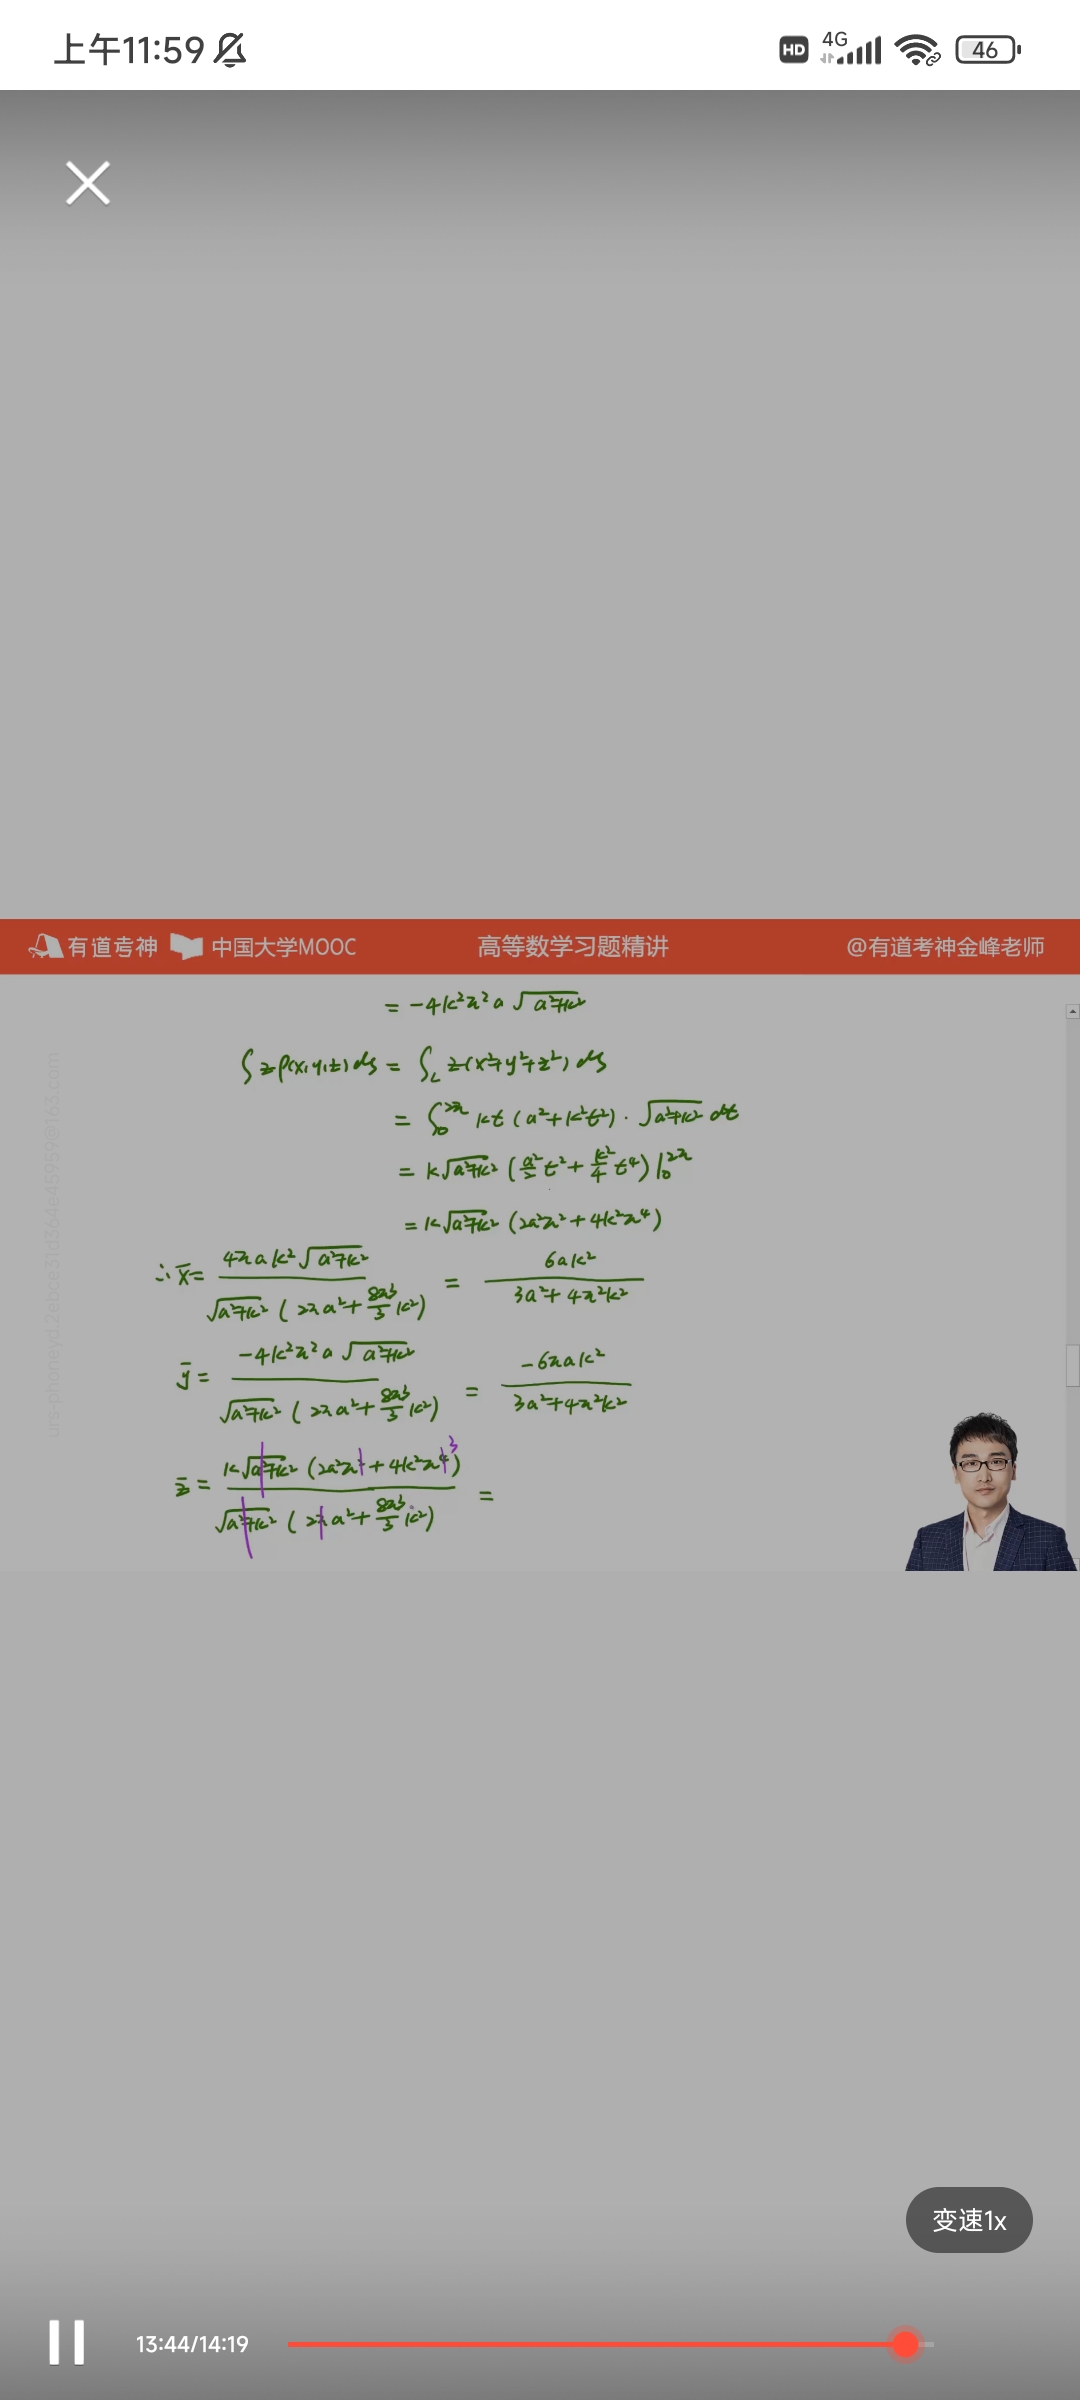 上午11:59 HD 4G 46
有道考神 中国大学MOOC 高等数学习题精讲 @有道考神金峰老师
= -4k²π²a √(a²+k²)
∫zρ(x,y,z)ds = ∫_L z(x²+y²+z²)ds
= ∫₀^{2π} kt(a²+k²t²)·√(a²+k²) dt
= k√(a²+k²) (a²/2 t² + k²/4 t⁴)|₀^{2π}
= k√(a²+k²) (2a²π²+4k²π⁴)
∴ x̄ = 4πak²√(a²+k²) / √(a²+k²) (2πa²+8π³/3 k²) = 6ak² / 3a²+4π²k²
ȳ = -4k²π²a √(a²+k²) / √(a²+k²) (2πa²+8π³/3 k²) = -6πak² / 3a²+4π²k²
z̄ = k√(a²+k²) (2a²π²+4k²π⁴) 3 / √(a²+k²) (2πa²+8π³/3 k²) =
变速1x
13:44/14:19